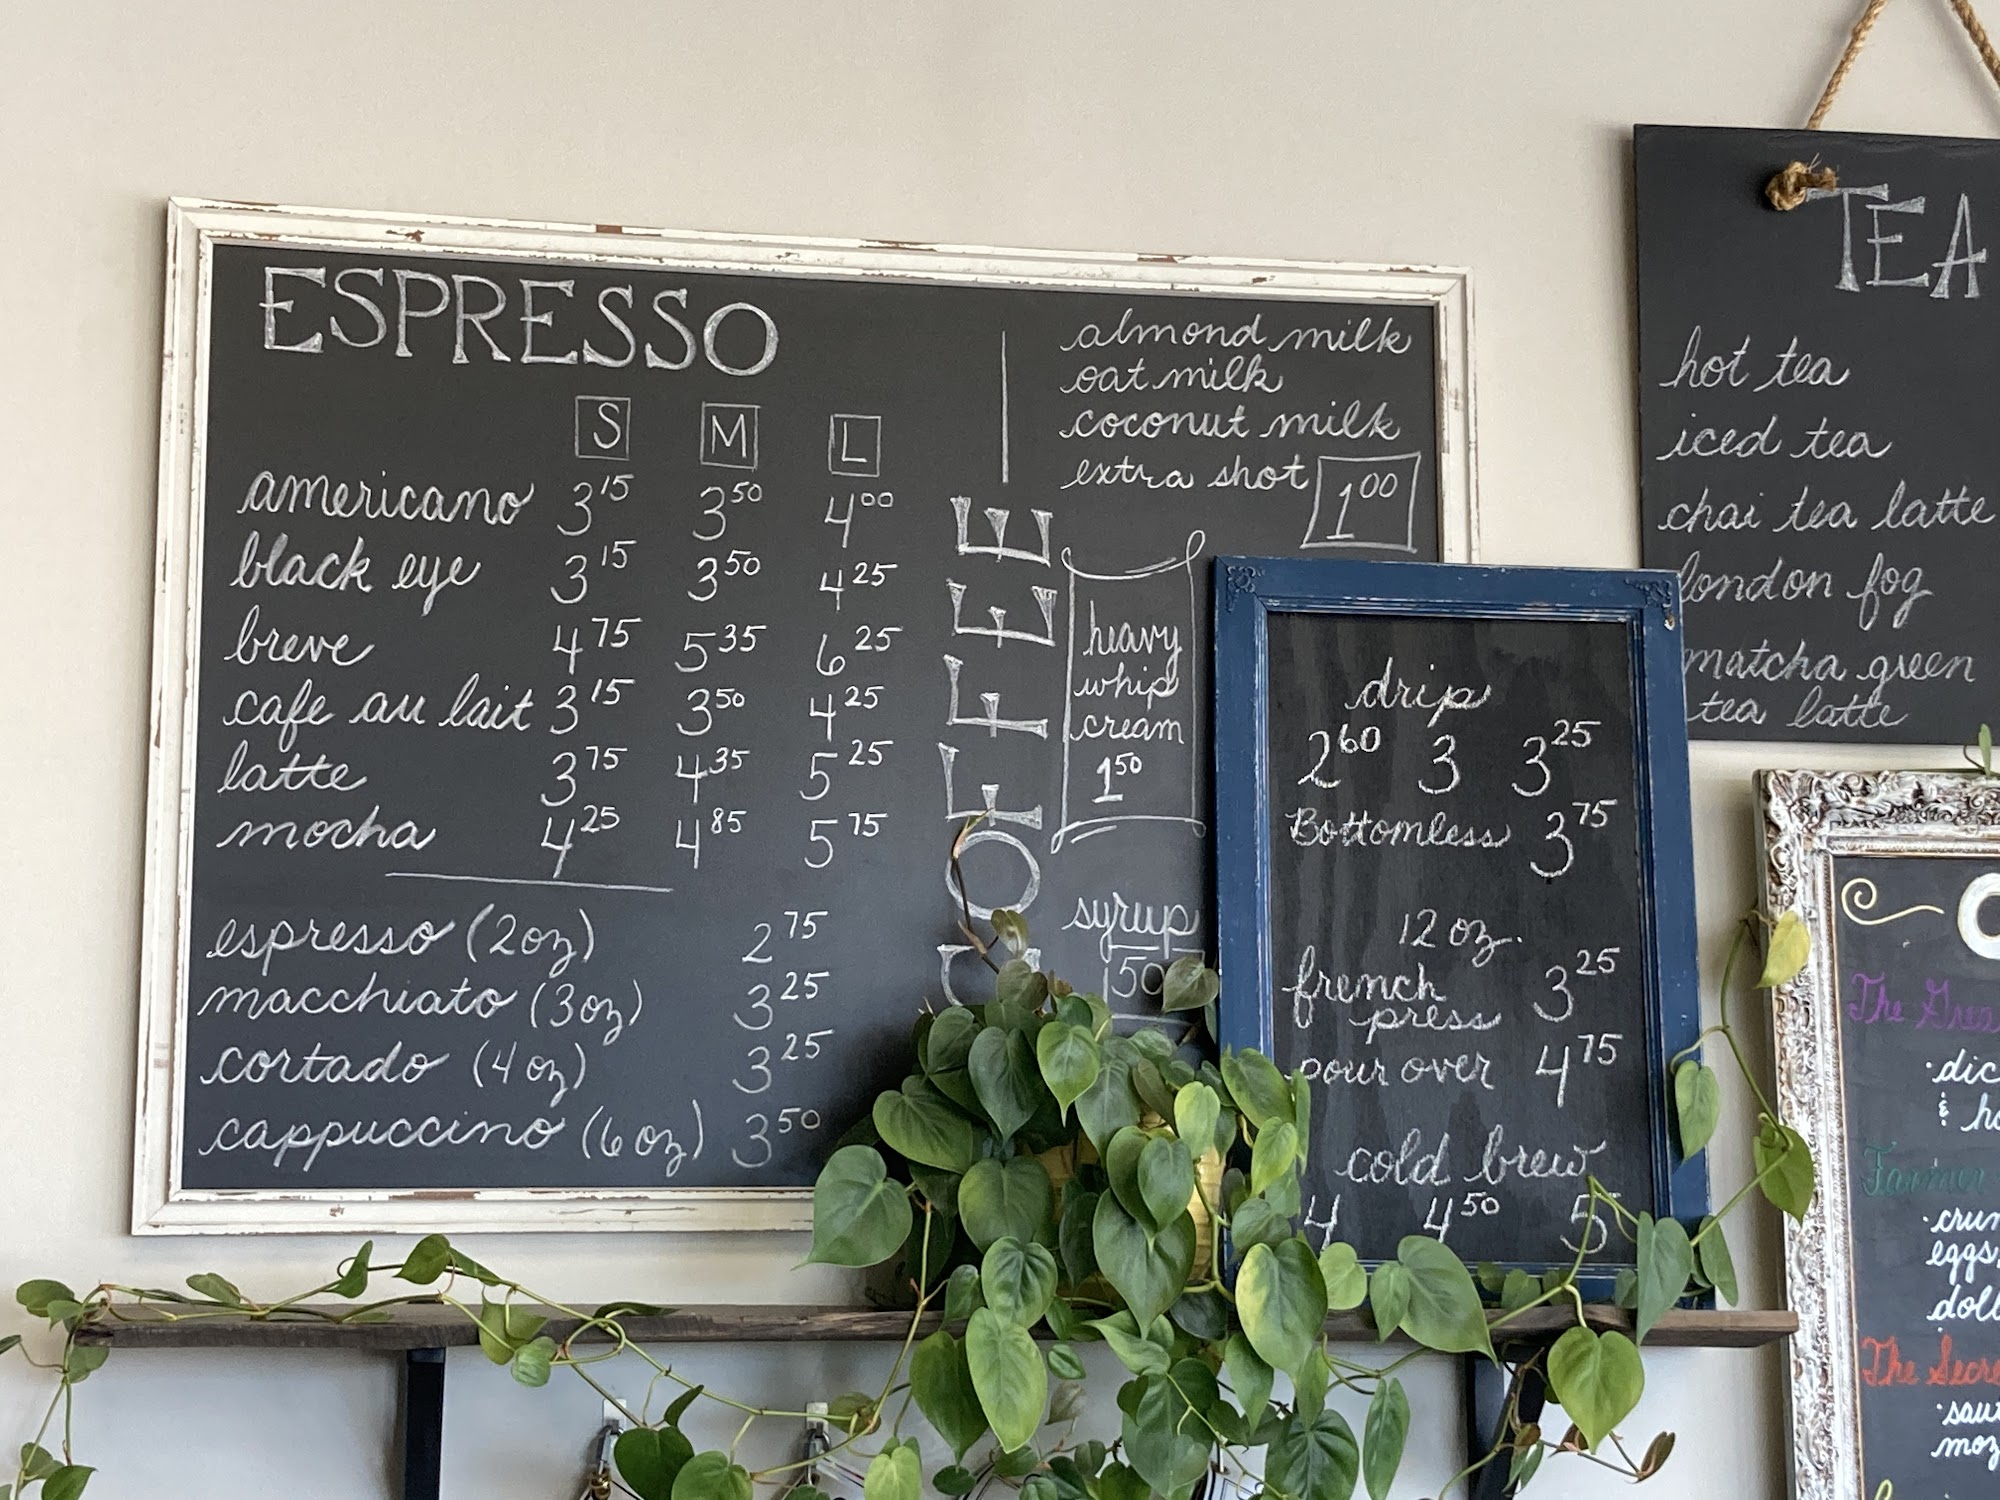 ESPRESSO
S M L
americano 3 15 3 50 4 00
black eye 3 15 3 50 4 25
breve 4 75 5 35 6 25
cafe au lait 3 15 3 50 4 25
latte 3 75 4 35 5 25
mocha 4 25 4 85 5 75
espresso (2oz) 2 75
macchiato (3oz) 3 25
cortado (4oz) 3 25
cappuccino (6oz) 3 50
COFFEE
almond milk
oat milk
coconut milk
extra shot 1 00
heavy
whip
cream
1 50
syrup
50
drip
2 60 3 3 25
Bottomless 3 75
12 oz.
french 3 25
press
pour over 4 75
cold brew
4 4 50 5
TEA
hot tea
iced tea
chai tea latte
london fog
matcha green
tea latte
The
Farmer
eggs,
The